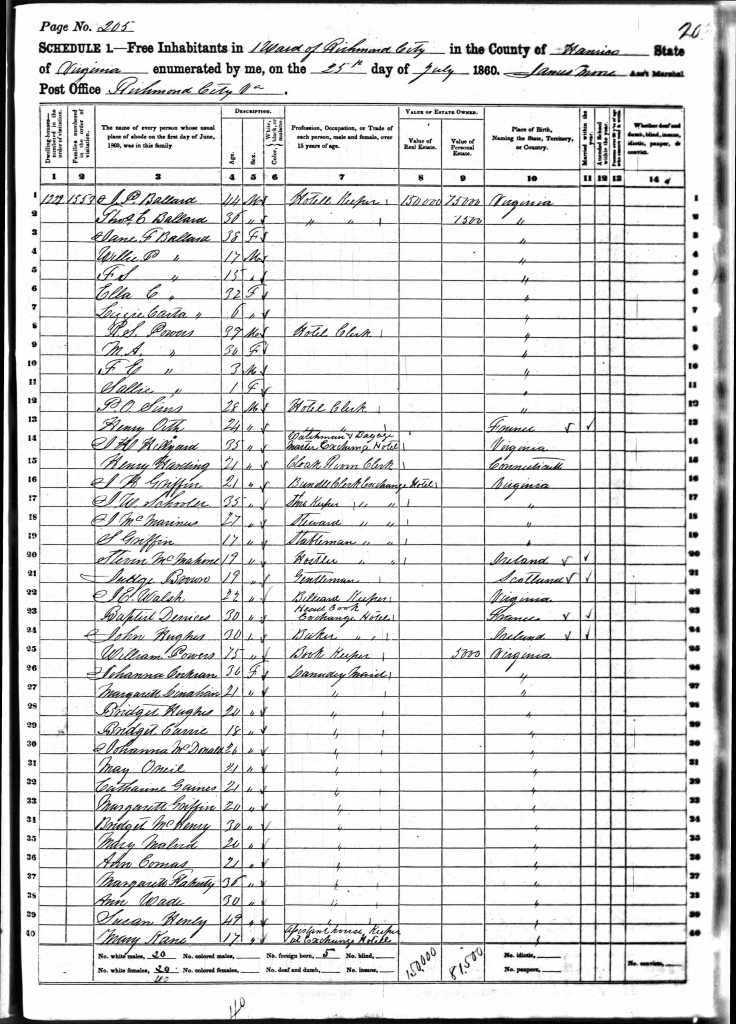 Page No. 205
SCHEDULE 1.—Free Inhabitants in 1 Ward of Richmond City in the County of Henrico State
of Virginia enumerated by me, on the 25th day of July 1860. James Moore Ass't Marshal
Post Office Richmond City Va
Dwelling-houses—numbered in the order of visitation.
Families numbered in the order of visitation.
The name of every person whose usual place of abode on the first day of June, 1860, was in this family
DESCRIPTION.
Age.
Sex.
Color, White, black, or mulatto.
Profession, Occupation, or Trade of each person, male and female, over 15 years of age.
VALUE OF ESTATE OWNED.
Value of Real Estate.
Value of Personal Estate.
Place of Birth, Naming the State, Territory, or Country.
Married within the year.
Attended School within the year.
Whether deaf and dumb, blind, insane, idiotic, pauper, or convict.
1 2 3 4 5 6 7 8 9 10 11 12 13 14
1 1553 J. P. Ballard 44 M Hotell Keeper 150,000 75000 Virginia 1
2 Thos E Ballard 36 " " " 1500 " 2
3 Jane F Ballard 38 F " 3
4 Willie P " 17 M " 4
5 F S " 15 " " 5
6 Ella C " 32 F " 6
7 Lizzie Carta " 6 " " 7
8 Powers 39 M Hotel Clerk " 8
9 M. A. " 30 F " 9
10 F C " 3 M " 10
11 Sallie " 1 F " 11
12 P. O. Sims 28 M Hotel Clerk " 12
13 Henry Orth 24 " " " France 13
14 35 " Watchman & Bagage Master Exchange Hotel Virginia 14
15 Henry Harding 21 " Cloak Room Clerk Connecticutt 15
16 Griffin 21 " Bundle Clerk Exchange Hotel Virginia 16
17 J. W. Schooler 35 " Keeper " " " 17
18 27 " Steward " " " 18
19 S Griffin 17 " Stableman " " " 19
20 McMahone 19 " Hostler " " Ireland 20
21 Judge Brown 19 " Gentleman Scotland 21
22 J. E. Walsh 22 " Billiard Keeper Virginia 22
23 Baptist 30 " Head Cook Exchange Hotel France 23
24 John Hughes 30 " Baker " " Ireland 24
25 William Powers 75 " Book Keeper 5000 Virginia 25
26 Johanna Corkran 36 F Laundry Maid " 26
27 Margarett 21 " " " 27
28 Bridget Hughes 20 " " " 28
29 Bridget 18 " " " 29
30 Johanna McDonald 26 " " " 30
31 May Oneil 21 " " " 31
32 Catharine Gaines 21 " " " 32
33 Margarett Griffin 20 " " " 33
34 Bridget McHenry 30 " " " 34
35 Mary 20 " " " 35
36 Ann Comas 21 " " " 36
37 Margarett Flaherty 36 " " " 37
38 Ann Wade 30 " " " 38
39 Susan Henly 49 " " " 39
40 Mary Kane 17 " Assistant house Keeper at Exchange Hotell " 40
No. white males, 20 No. colored males, No. foreign born, 5 No. blind, 150,000 81500 No. idiotic, No. convicts,
No. white females, 20 No. colored females, No. deaf and dumb, No. insane, No. paupers,
40